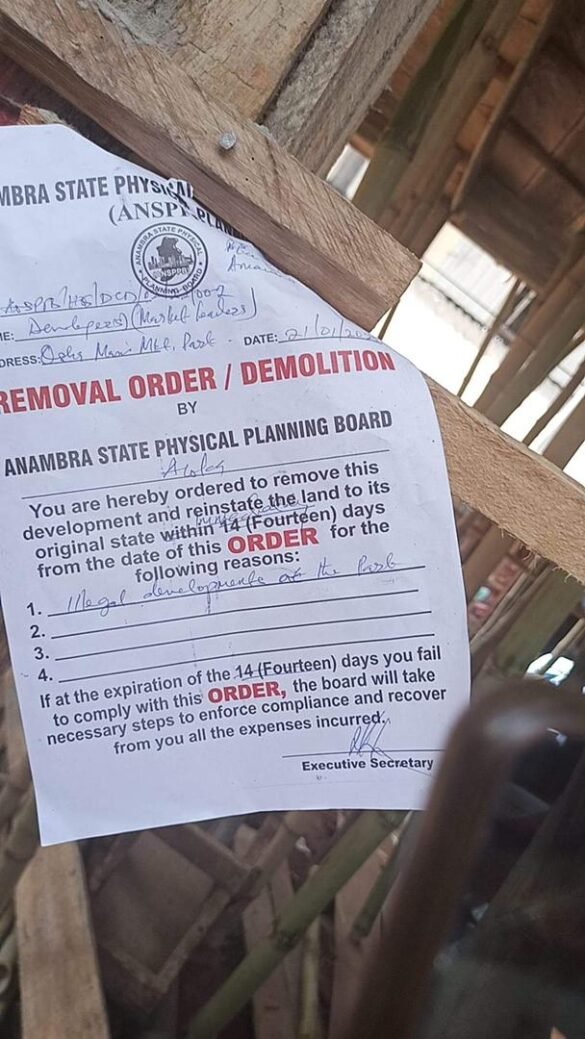 MBRA STATE PHYSICAL
(ANSPPB
PLAN
ANAMBRA STATE PHYSICAL
ANSPPB
PLANNING BOARD
ME: Developers) (Market Leaders)
DRESS: Mkt, Park DATE: 21/01/20
REMOVAL ORDER / DEMOLITION
BY
ANAMBRA STATE PHYSICAL PLANNING BOARD
You are hereby ordered to remove this
development and reinstate the land to its
original state within 14 (Fourteen) days
from the date of this ORDER for the
following reasons:
1. Illegal developments at the Park
2.
3.
4.
If at the expiration of the 14 (Fourteen) days you fail
to comply with this ORDER, the board will take
necessary steps to enforce compliance and recover
from you all the expenses incurred.
Executive Secretary